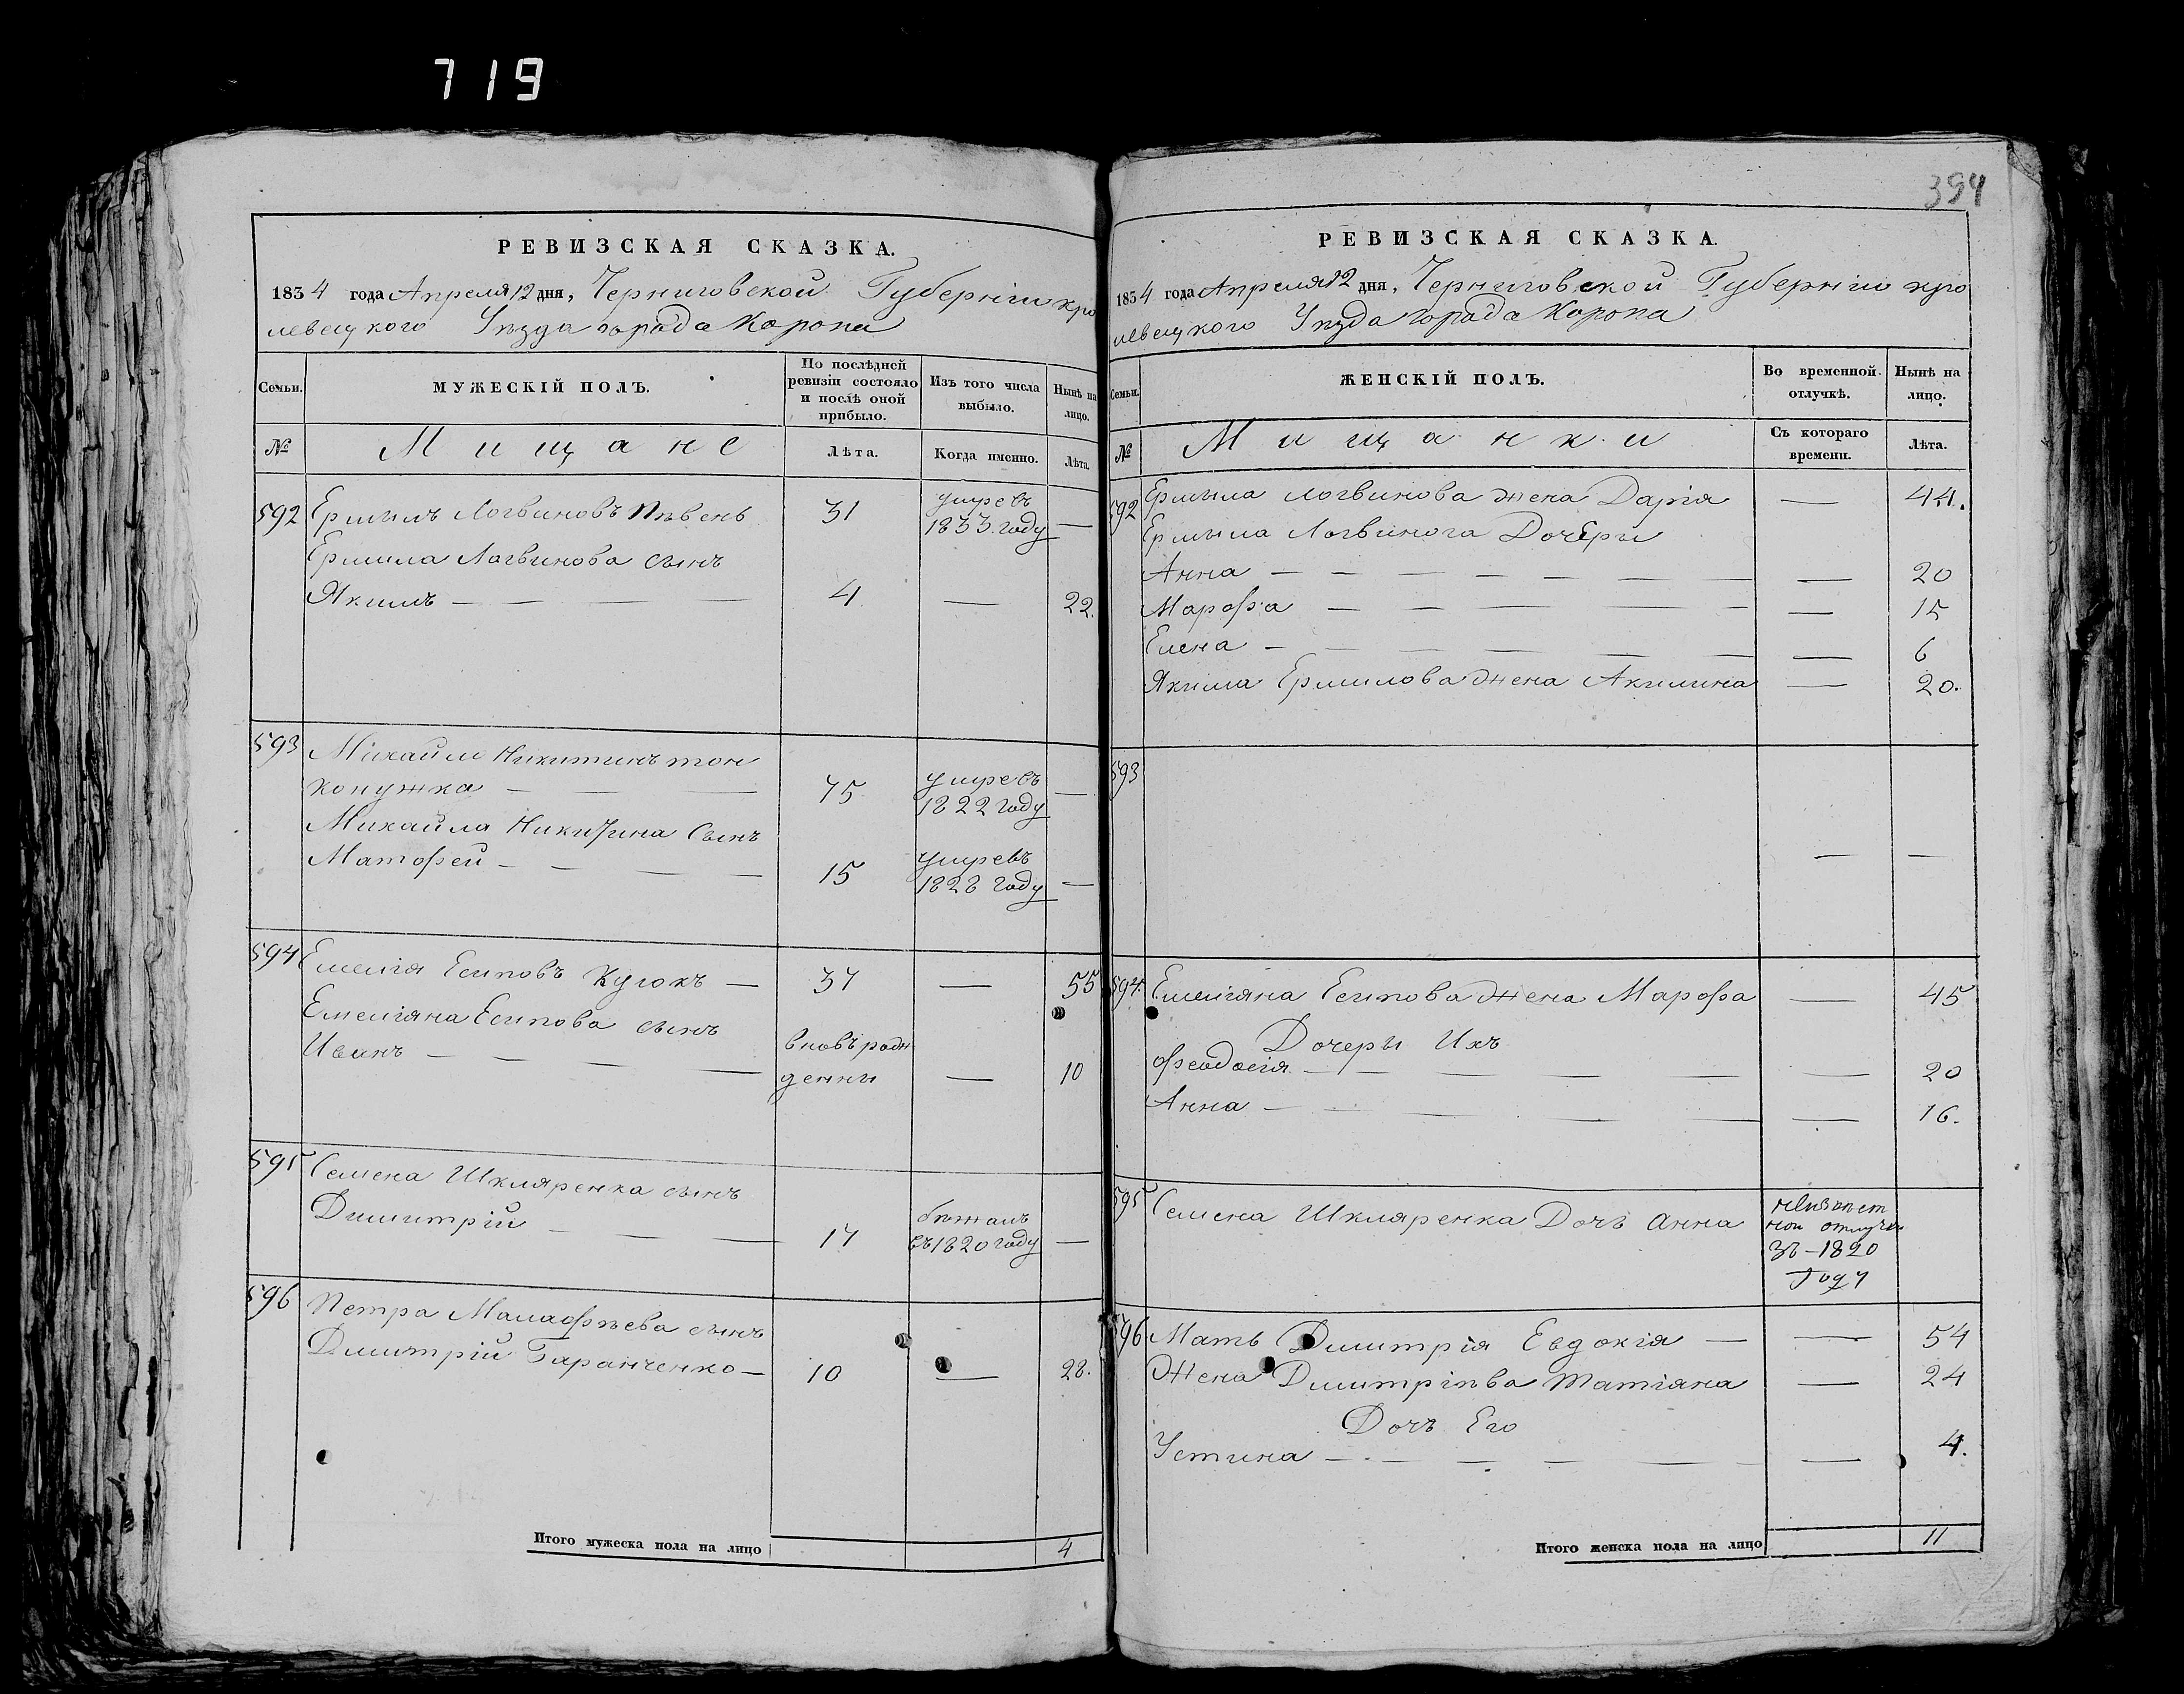 719
394
РЕВИЗСКАЯ СКАЗКА.
1834 года Апреля 12 дня, Черниговской Губерніи кро
левецкого Уѣзда города Коропа
Семьи. МУЖЕСКІЙ ПОЛЪ. По послѣдней ревизіи состояло и послѣ оной прибыло. Изъ того числа выбыло. Нынѣ на лицо.
№ Мищане Лѣта. Когда именно. Лѣта.
592 Ермылъ Логвиновъ Пѣвень 31 умре въ 1833. году —
Ермила Логвинова сынъ
Якимъ — 4 — 22.
593 Михайло Никитинъ тон
конужка — 75 умре въ 1822 году —
Михайла Никитина Сынъ
Матофей — 15 умре въ 1828 году —
594 Емелія Есиповъ Куюкъ — 37 — 55
Емеліяна Есипова сынъ
Иванъ — вновь рож
денны — 10
595 Семена Шкляренка сынъ
Димитрій — 17 бѣжалъ въ 1820 году —
596 Петра Малафѣева сынъ
Димитрій Гаранченко — 10 — 28.
Итого мужеска пола на лицо 4
РЕВИЗСКАЯ СКАЗКА.
1834 года Апреля 12 дня, Черниговской Губерніи кро
левецкого Уѣзда города Коропа
Семьи. ЖЕНСКІЙ ПОЛЪ. Во временной отлучкѣ. Нынѣ на лицо.
№ Мищанки Съ котораго времени. Лѣта.
592 Ермыла Логвинова жена Дарія — 44.
Ермыла Логвинога Дочеры
Анна — — 20
Марофа — — 15
Елена — — 6
Якима Ермилова жена Акилина — 20.
593 — —
594 Емеліяна Есипова жена Марофа — 45
Дочеры Ихъ
Офеодосія — — 20
Анна — — 16.
595 Семена Шкляренка Дочъ Анна
неизвѣст
ной отлучки
зъ — 1820
году
596 Мать Димитрія Евдокія — — 54
Жена Димитріѣва Татіяна — 24
Дочъ Его
Устина — — 4.
Итого женска пола на лицо 11